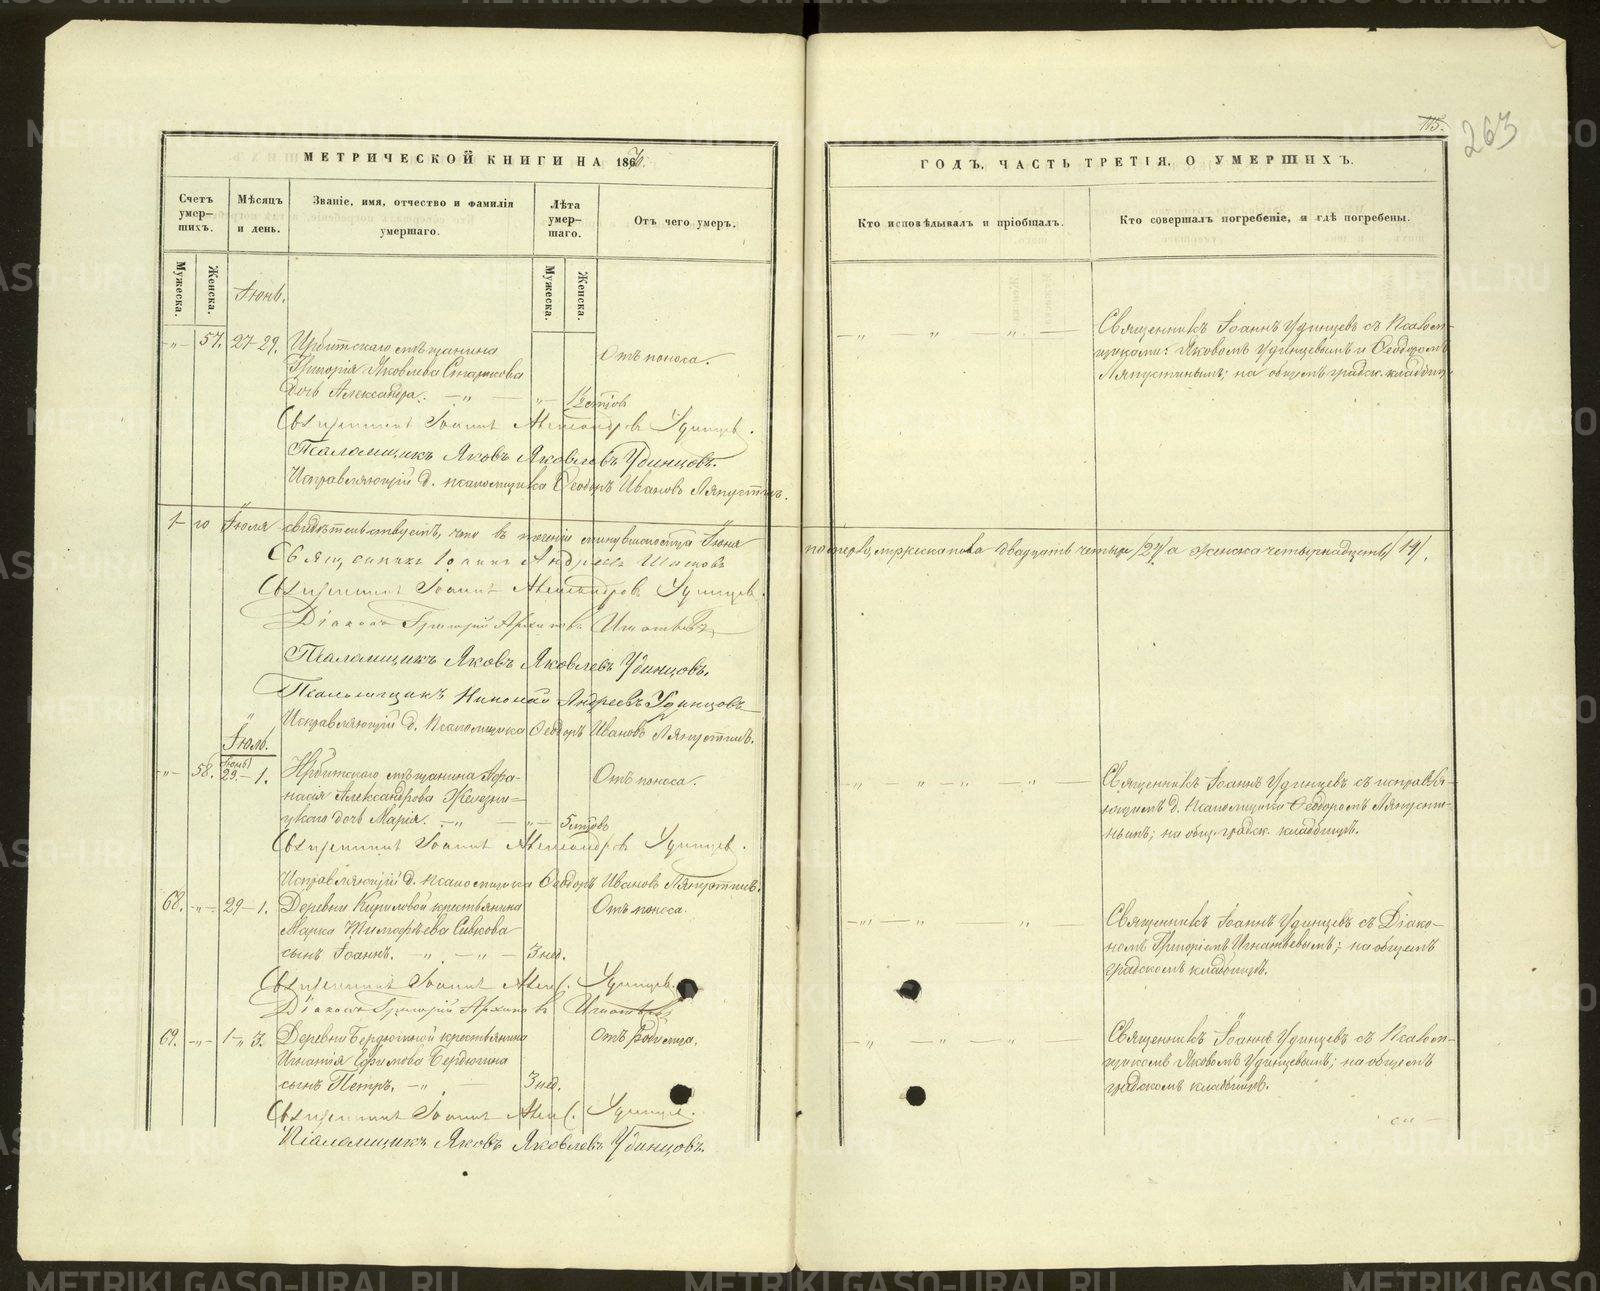 МЕТРИЧЕСКОЙ КНИГИ НА 186
Счетъ умер-шихъ.
Мѣсяцъ и день.
Званіе, имя, отчество и фамилія умершаго.
Лѣта умер-шаго.
Отъ чего умеръ.
Мужеска.
Женска.
Мужеска.
Женска.
Іюнь.
57. 27-29. Ирбитскаго мѣщанина
Григорія Яковлева
дочь Александра.
Отъ поноса.
Священникъ Іоаннъ Александровъ Удинцев.
Псаломщикъ Яковъ Яковлевъ Удинцовъ.
Исправляющій д. псаломщика Ѳеодоръ Ивановъ Ляпустинъ.
1-го Іюля свидѣтельствуемъ, что въ теченіе минувшаго м-ца Іюня
Священникъ Іоаннъ Андреевъ
Священникъ Іоаннъ Александровъ Удинцев.
Діаконъ Григорій Архиповъ Игнатьевъ
Псаломщикъ Яковъ Яковлевъ Удинцовъ.
Псаломщикъ Николай Андреевъ Удинцовъ
Исправляющій д. псаломщика Ѳеодоръ Ивановъ Ляпустинъ.
Іюль.
58. 29-1. Ирбитскаго мѣщанина Афа-
насія Александрова
дочь Марія.
5 мцовъ
Отъ поноса.
Священникъ Іоаннъ Александровъ Удинцев.
Исправляющій д. псаломщика Ѳеодоръ Ивановъ Ляпустинъ.
68. 29-1. Деревни Кириловой крестьянина
Марка Тимофѣева Сивкова
сынъ Іоаннъ.
3 нед.
Отъ поноса.
Священникъ Іоаннъ Алек. Удинцев.
Діаконъ Григорій Архиповъ Игнатьевъ
69. 1-3. Деревни Бердюгиной крестьянина
Игнатія Ефимова Бердюгина
сынъ Петръ.
3 нед.
Отъ родимца.
Священникъ Іоаннъ Алек. Удинцев.
Псаломщикъ Яковъ Яковлевъ Удинцовъ.
115.
263
ГОДЪ, ЧАСТЬ ТРЕТІЯ, О УМЕРШИХЪ.
Кто исповѣдывалъ и пріобщалъ.
Кто совершалъ погребеніе, и гдѣ погребены.
Священникъ Іоаннъ Удинцевъ съ псалом-
щиками: Яковомъ Удинцевымъ и Ѳеодоромъ
Ляпустинымъ; на общемъ градск. кладбищ.
померло мужеска пола двадцать четыре /24/ а женска четырнадцать /14/.
Священникъ Іоаннъ Удинцевъ съ исправля-
ющимъ д. псаломщика Ѳеодоромъ Ляпусти-
нымъ; на общ. градск. кладбищѣ.
Священникъ Іоаннъ Удинцевъ съ Діако-
номъ Григоріемъ Игнатьевымъ; на общемъ
градскомъ кладбищѣ.
Священникъ Іоаннъ Удинцевъ съ псалом-
щикомъ Яковомъ Удинцевымъ; на общемъ
градскомъ кладбищѣ.
METRIKI.GASO-URAL.RU